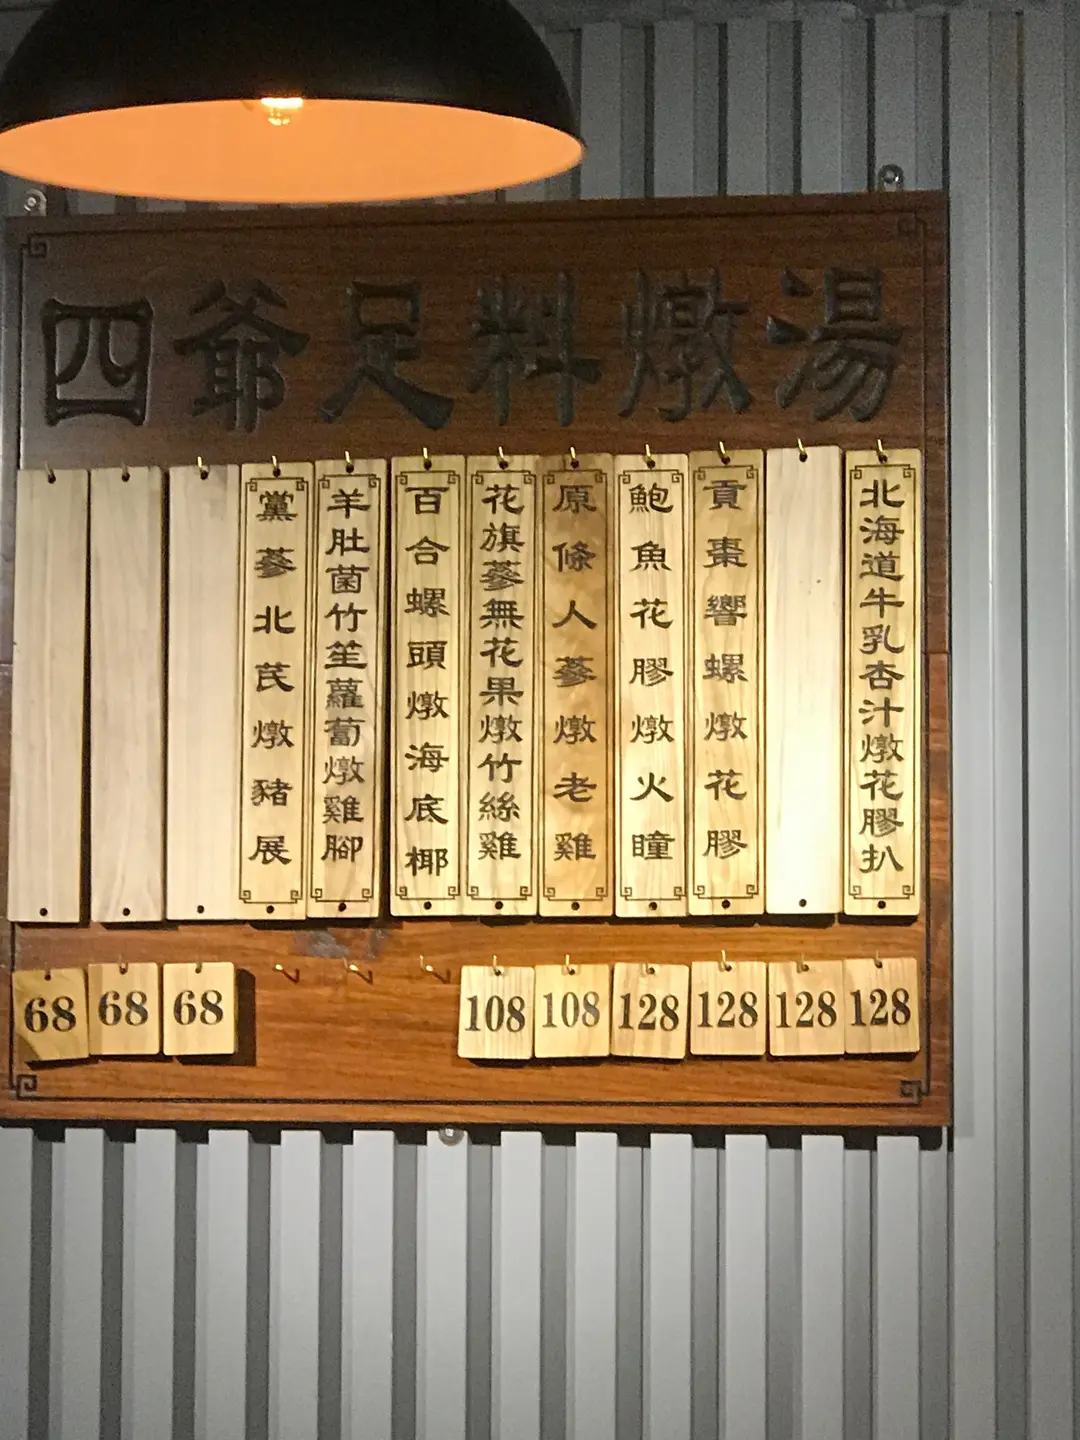 四爺足料燉湯
北海道牛乳杏汁燉花膠扒
貢棗響螺燉花膠
鮑魚花膠燉火瞳
原條人蔘燉老雞
花旗蔘無花果燉竹絲雞
百合螺頭燉海底椰
羊肚菌竹笙蘿蔔燉雞腳
黨蔘北芪燉豬展
68 68 68 108 108 128 128 128 128